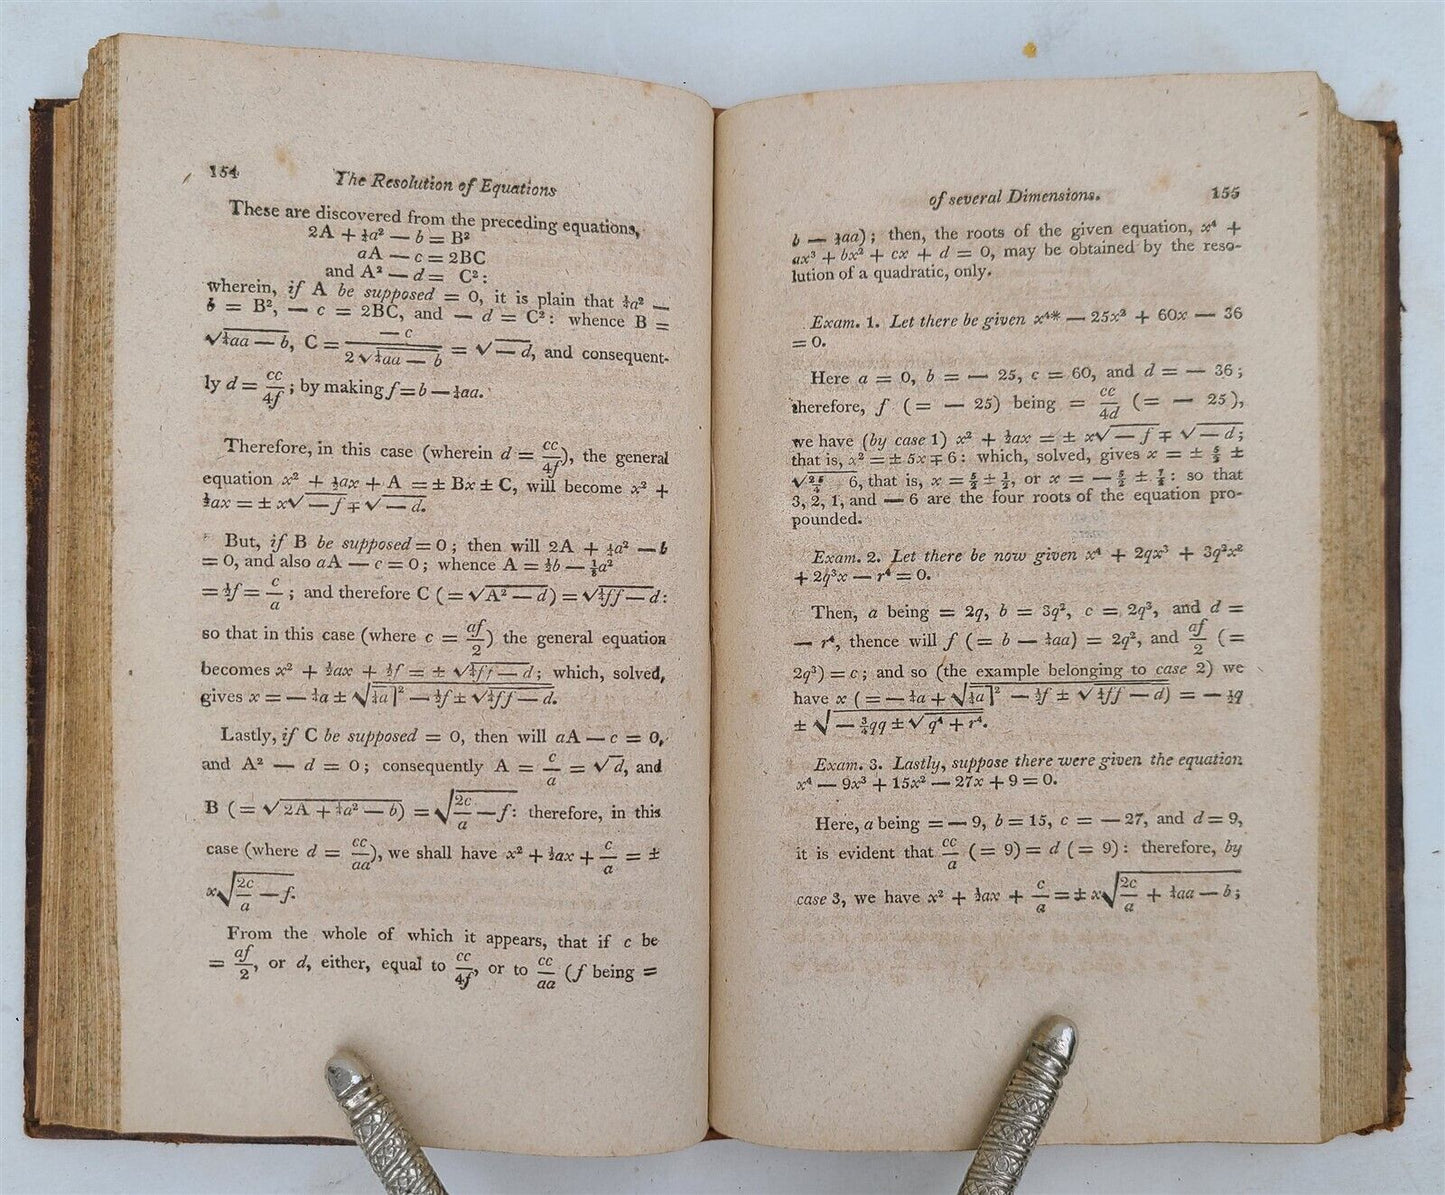 154
The Resolution of Equations
These are discovered from the preceding equations,
2A + ¼a² — b = B²
aA — c = 2BC
and A² — d = C²:
wherein, if A be supposed = 0, it is plain that ¼a² —
b = B², — c = 2BC, and — d = C²: whence B =
√¼aa — b, C = — c / 2√¼aa — b = √— d, and consequent-
ly d = cc/4f; by making f = b — ¼aa.
Therefore, in this case (wherein d = cc/4f), the general
equation x² + ½ax + A = ± Bx ± C, will become x² +
½ax = ± x√— f ∓ √— d.
But, if B be supposed = 0; then will 2A + ¼a² — b
= 0, and also aA — c = 0; whence A = ½b — ⅛a²
= ½f = c/a; and therefore C (= √A² — d) = √¼ff — d:
so that in this case (where c = af/2) the general equation
becomes x² + ½ax + ½f = ± √¼ff — d; which, solved,
gives x = — ¼a ± √¼a]² — ½f ± √¼ff — d.
Lastly, if C be supposed = 0, then will aA — c = 0,
and A² — d = 0; consequently A = c/a = √d, and
B (= √2A + ¼a² — b) = √2c/a — f: therefore, in this
case (where d = cc/aa), we shall have x² + ½ax + c/a = ±
x√2c/a — f.
From the whole of which it appears, that if c be
= af/2, or d, either, equal to cc/4f, or to cc/aa (f being =
of several Dimensions.
155
b — ¼aa); then, the roots of the given equation, x⁴ +
ax³ + bx² + cx + d = 0, may be obtained by the reso-
lution of a quadratic, only.
Exam. 1. Let there be given x⁴* — 25x² + 60x — 36
= 0.
Here a = 0, b = — 25, c = 60, and d = — 36;
therefore, f (= — 25) being = cc/4d (= — 25),
we have (by case 1) x² + ½ax = ± x√— f ∓ √— d;
that is, x² = ± 5x ∓ 6: which, solved, gives x = ± 5/2 ±
√25/4 6, that is, x = 5/2 ± ½, or x = — 5/2 ± 7/2: so that
3, 2, 1, and — 6 are the four roots of the equation pro-
pounded.
Exam. 2. Let there be now given x⁴ + 2qx³ + 3q²x²
+ 2q³x — r⁴ = 0.
Then, a being = 2q, b = 3q², c = 2q³, and d =
— r⁴, thence will f (= b — ¼aa) = 2q², and af/2 (=
2q³) = c; and so (the example belonging to case 2) we
have x (= — ¼a + √¼a]² — ½f ± √¼ff — d) = — ½q
± √— ¾qq ± √q⁴ + r⁴.
Exam. 3. Lastly, suppose there were given the equation
x⁴ — 9x³ + 15x² — 27x + 9 = 0.
Here, a being = — 9, b = 15, c = — 27, and d = 9,
it is evident that cc/a (= 9) = d (= 9): therefore, by
case 3, we have x² + ½ax + c/a = ± x√2c/a + ¼aa — b;